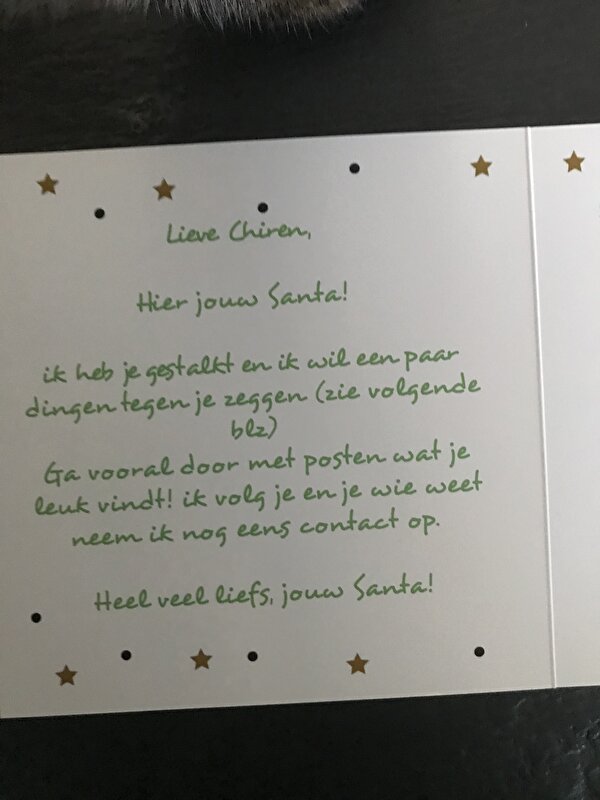 Lieve Chiren,
Hier jouw Santa!
ik heb je gestalkt en ik wil een paar
dingen tegen je zeggen (zie volgende
blz)
Ga vooral door met posten wat je
leuk vindt! ik volg je en je wie weet
neem ik nog eens contact op.
Heel veel liefs, jouw Santa!